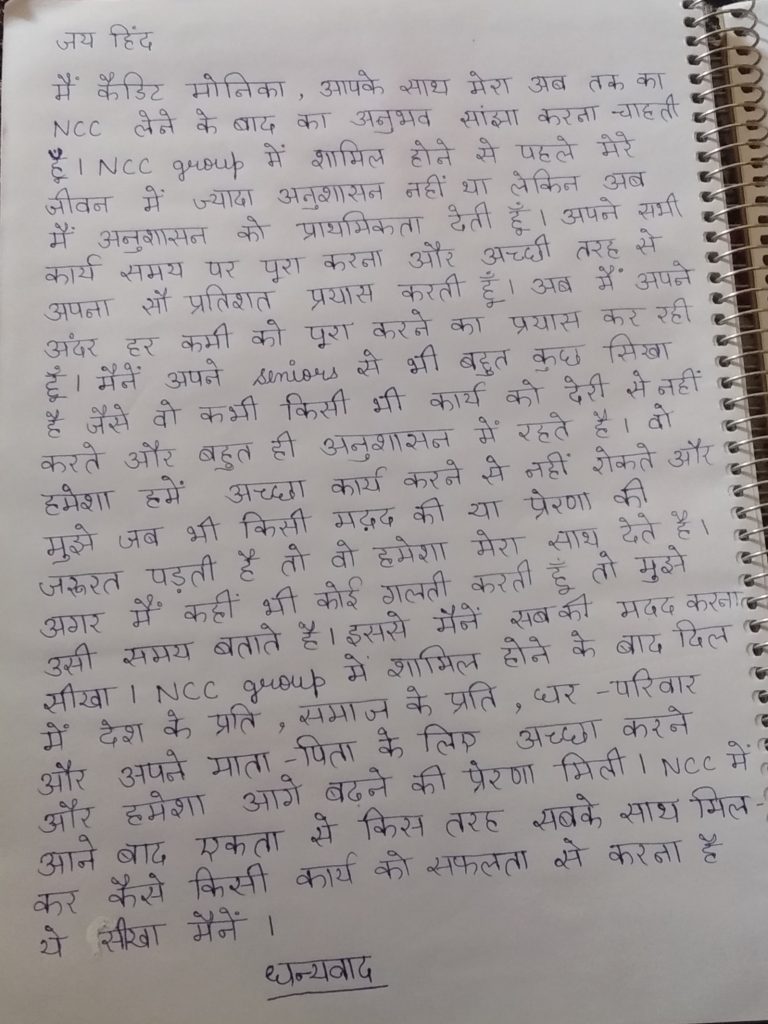 जय हिंद
मैं कैडिट मोनिका, आपके साथ मेरा अब तक का
NCC लेने के बाद का अनुभव सांझा करना चाहती
हूँ। NCC group में शामिल होने से पहले मेरे
जीवन में ज्यादा अनुशासन नहीं था लेकिन अब
मैं अनुशासन को प्राथमिकता देती हूँ। अपने सभी
कार्य समय पर पूरा करना और अच्छी तरह से
अपना सौ प्रतिशत प्रयास करती हूँ। अब मैं अपने
अंदर हर कमी को पूरा करने का प्रयास कर रही
हूँ। मैनें अपने seniors से भी बहुत कुछ सिखा
है जैसे वो कभी किसी भी कार्य को देरी से नहीं
करते और बहुत ही अनुशासन में रहते है। वो
हमेशा हमें अच्छा कार्य करने से नहीं रोकते और
मुझे जब भी किसी मद़द की या प्रेरणा की
जरूरत पड़ती है तो वो हमेशा मेरा साथ देते है।
अगर मैं कहीं भी कोई गलती करती हूँ तो मुझे
उसी समय बताते है। इससे मैनें सबकी मदद करना
सीखा। NCC group में शामिल होने के बाद दिल
में देश के प्रति, समाज के प्रति, घर-परिवार
और अपने माता-पिता के लिए अच्छा करने
और हमेशा आगे बढ़ने की प्रेरणा मिली। NCC में
आने बाद एकता से किस तरह सबके साथ मिल-
कर कैसे किसी कार्य को सफलता से करना है
ये सीखा मैनें।
धन्यवाद